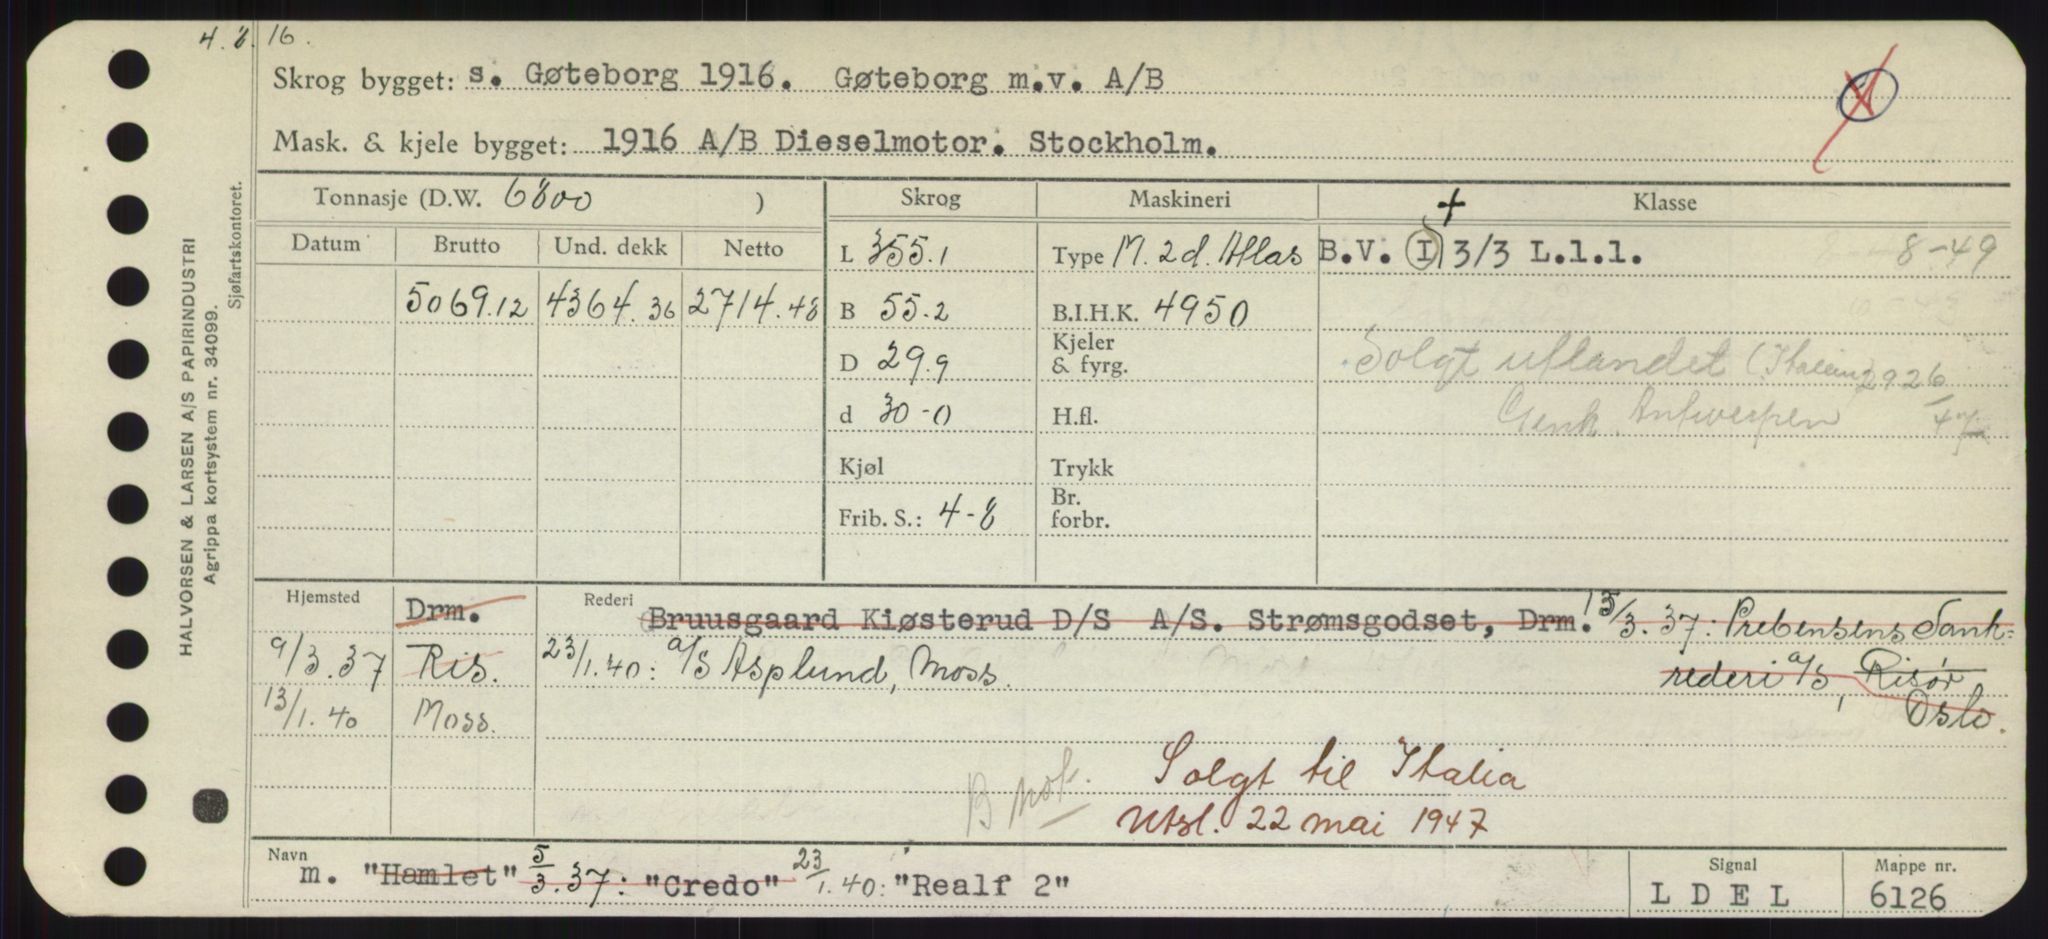 4. 8. 16.
Skrog bygget: s. Gøteborg 1916. Gøteborg m.v. A/B
Mask. & kjele bygget: 1916 A/B Dieselmotor. Stockholm.
HALVORSEN & LARSEN A/S PAPIRINDUSTRI
Agrippa kortsystem nr. 34099.
Sjøfartskontoret.
Tonnasje (D.W. 6800 ) Skrog Maskineri Klasse
Datum Brutto Und. dekk Netto L 355.1 Type M. 2 d. Atlas B.V. + I 3/3 L.l.l. 8-49
5069.12 4364.36 2714.48 B 55.2 B.I.H.K. 4950
D 29.9 Kjeler & fyrg. Solgt utlandet (Italien) 2926
d 30-0 H.fl. Antwerpen 47
Kjøl Trykk
Frib. S.: 4-8 Br. forbr.
Hjemsted Drm. Rederi Bruusgaard Kiøsterud D/S A/S. Strømsgodset, Drm. 15/3.37: Prebensens Tank-
9/3.37 Ris. 23/1.40: a/S Asplund, Moss. rederi a/S, Risør
13/1.40 Moss. Oslo.
Solgt til Italia
B nok. Utsl. 22 mai 1947
Navn m. "Hamlet" 5/3.37: "Credo" 23/1.40: "Realf 2" Signal LDEL Mappe nr. 6126